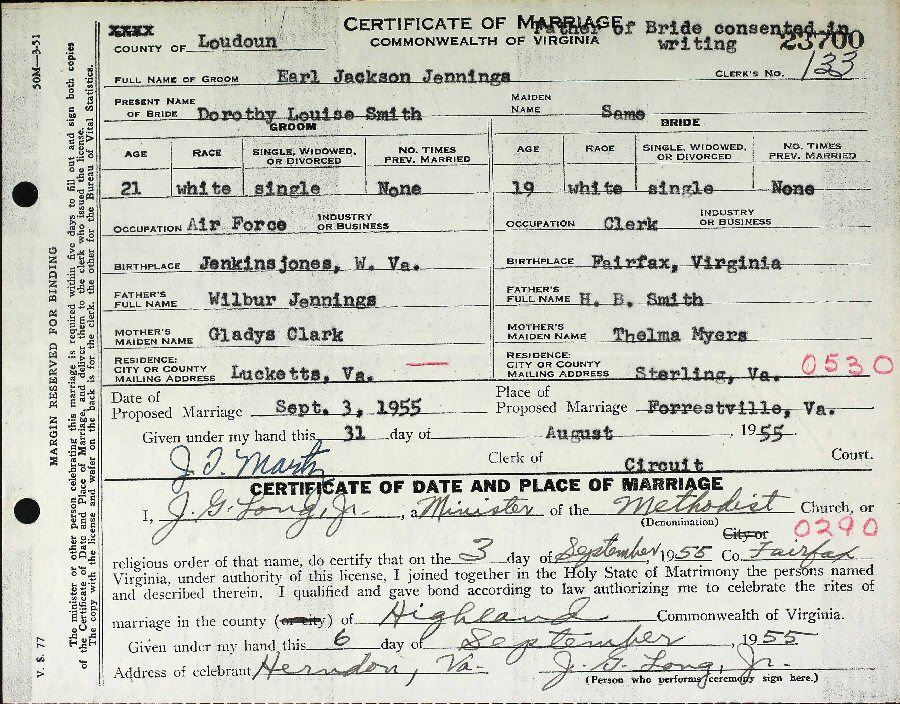 XXXX
COUNTY OF Loudoun
CERTIFICATE OF MARRIAGE
COMMONWEALTH OF VIRGINIA
Father of Bride consented in
writing
23700
CLERK'S NO. 133
FULL NAME OF GROOM Earl Jackson Jennings
PRESENT NAME OF BRIDE Dorothy Louise Smith MAIDEN NAME Same
GROOM BRIDE
AGE RACE SINGLE, WIDOWED, OR DIVORCED NO. TIMES PREV. MARRIED AGE RACE SINGLE, WIDOWED, OR DIVORCED NO. TIMES PREV. MARRIED
21 white single None 19 white single None
OCCUPATION Air Force INDUSTRY OR BUSINESS OCCUPATION Clerk INDUSTRY OR BUSINESS
BIRTHPLACE Jenkinsjones, W. Va. BIRTHPLACE Fairfax, Virginia
FATHER'S FULL NAME Wilbur Jennings FATHER'S FULL NAME H. B. Smith
MOTHER'S MAIDEN NAME Gladys Clark MOTHER'S MAIDEN NAME Thelma Myers
RESIDENCE: CITY OR COUNTY MAILING ADDRESS Lucketts, Va. — RESIDENCE: CITY OR COUNTY MAILING ADDRESS Sterling, Va. 0530
Date of Proposed Marriage Sept. 3, 1955 Place of Proposed Marriage Forrestville, Va.
Given under my hand this 31 day of August 1955.
J. T. Martz Clerk of Circuit Court.
CERTIFICATE OF DATE AND PLACE OF MARRIAGE
I, J. G. Long, Jr., a Minister of the Methodist Church, or
(Denomination) City or 0290
religious order of that name, do certify that on the 3 day of September, 1955 Co. Fairfax
Virginia, under authority of this license, I joined together in the Holy State of Matrimony the persons named
and described therein. I qualified and gave bond according to law authorizing me to celebrate the rites of
marriage in the county (or city) of Highland Commonwealth of Virginia.
Given under my hand this 6 day of September, 1955
Address of celebrant Herndon, Va. J. G. Long, Jr.
(Person who performs ceremony sign here.)
50M—3-31
MARGIN RESERVED FOR BINDING
V. S. 77
The minister or other person celebrating this marriage is required within five days to fill out and sign both copies
of the Certificate of Date and Place of Marriage, and deliver them to the clerk who issued the license.
The copy with the license and wafer on the back is for the clerk, the other for the Bureau of Vital Statistics.